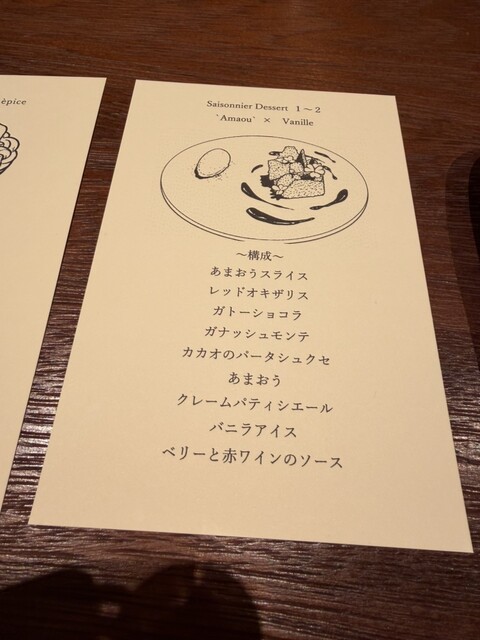 èpice
Saisonnier Dessert 1～2
`Amaou` × Vanille
～構成～
あまおうスライス
レッドオキザリス
ガトーショコラ
ガナッシュモンテ
カカオのパータシュクセ
あまおう
クレームパティシエール
バニラアイス
ベリーと赤ワインのソース